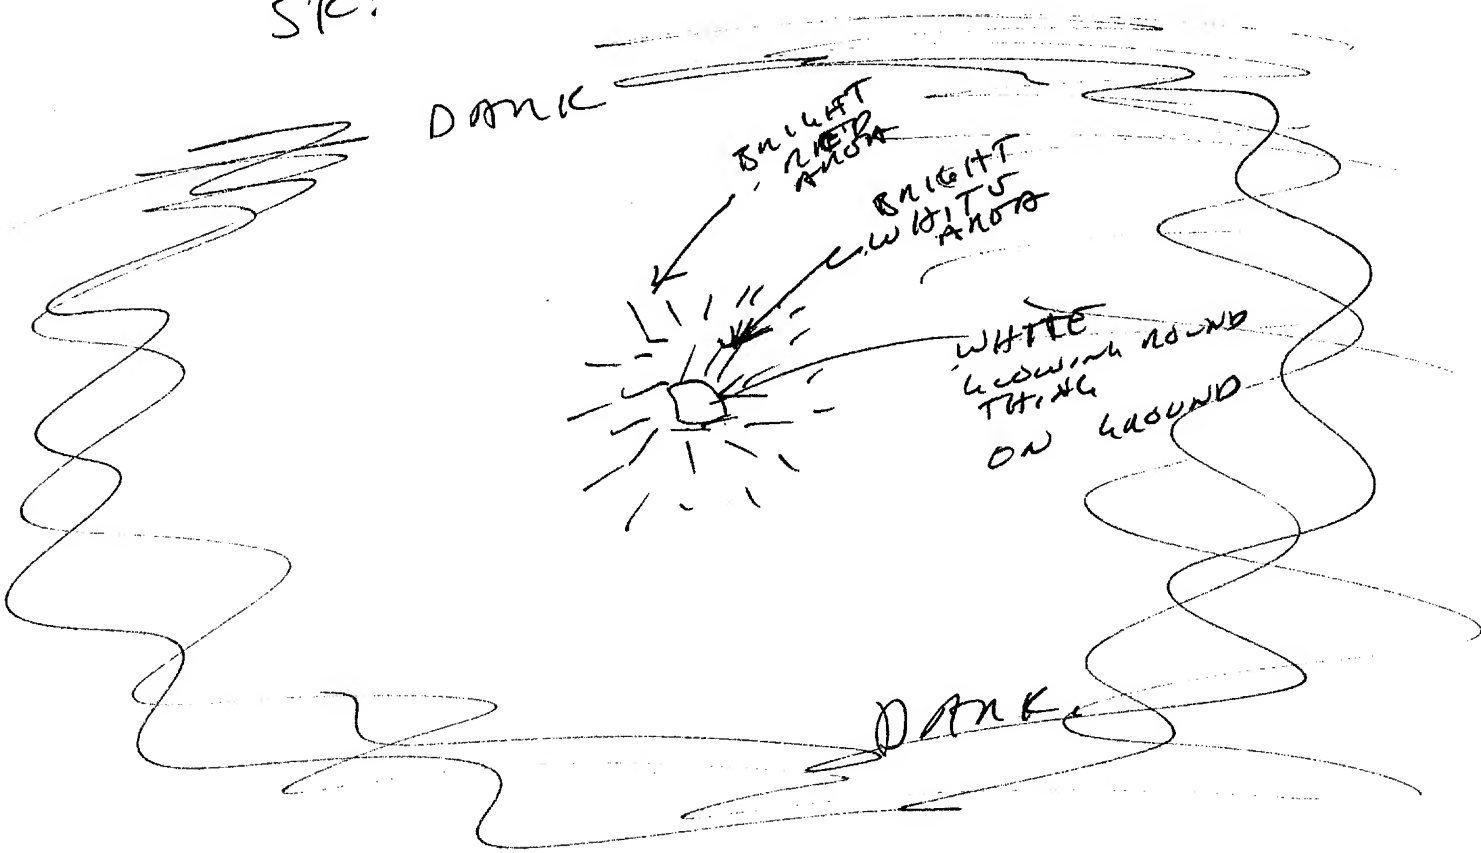 SK:
DARK
BRIGHT
RED
AREA
BRIGHT
WHITE
AREA
WHITE
GLOWING ROUND
THING
ON GROUND
DARK.